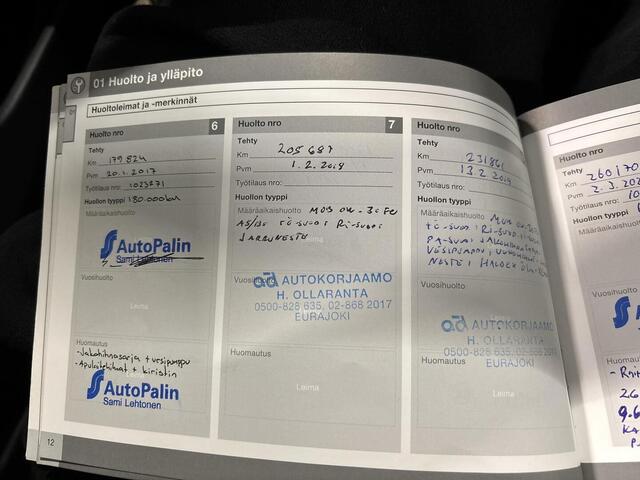 01 Huolto ja ylläpito
Huoltoleimat ja -merkinnät
Huolto nro 6
Tehty
Km 179824
Pvm 20.1.2017
Työtilaus nro: 1023271
Huollon tyyppi 180.000km
Määräaikaishuolto
AutoPalin
Sami Lehtonen
Vuosihuolto
Leima
Huomautus
-Jakohihnasarja + vesipumppu
-Apulaitehihnat + kiristin
AutoPalin
Sami Lehtonen
12
Huolto nro 7
Tehty
Km 205687
Pvm 1.2.2018
Työtilaus nro:
Huollon tyyppi
Määräaikaishuolto MOB 0W-30 FE
Leima
JARRUNESTE
Vuosihuolto
ad AUTOKORJAAMO
H. OLLARANTA
0500-828 635, 02-868 2017
EURAJOKI
Huomautus
Leima
Huolto nro
Tehty
Km 231861
Pvm 13.2.2019
Työtilaus nro:
Huollon tyyppi
Määräaikaishuolto MOB 0W-30
VESIPUMPPU
NESTE
Vuosihuolto
ad AUTOKORJAAMO
H. OLLARANTA
0500-828 635, 02-868 2017
EURAJOKI
Huomautus
Leima
Huolto nro
Tehty
Km 260170
Pvm 2.3.202
Työtilaus nro:
Huollon tyyppi
Määräaikaishuolto
Vuosihuolto
Huomautus